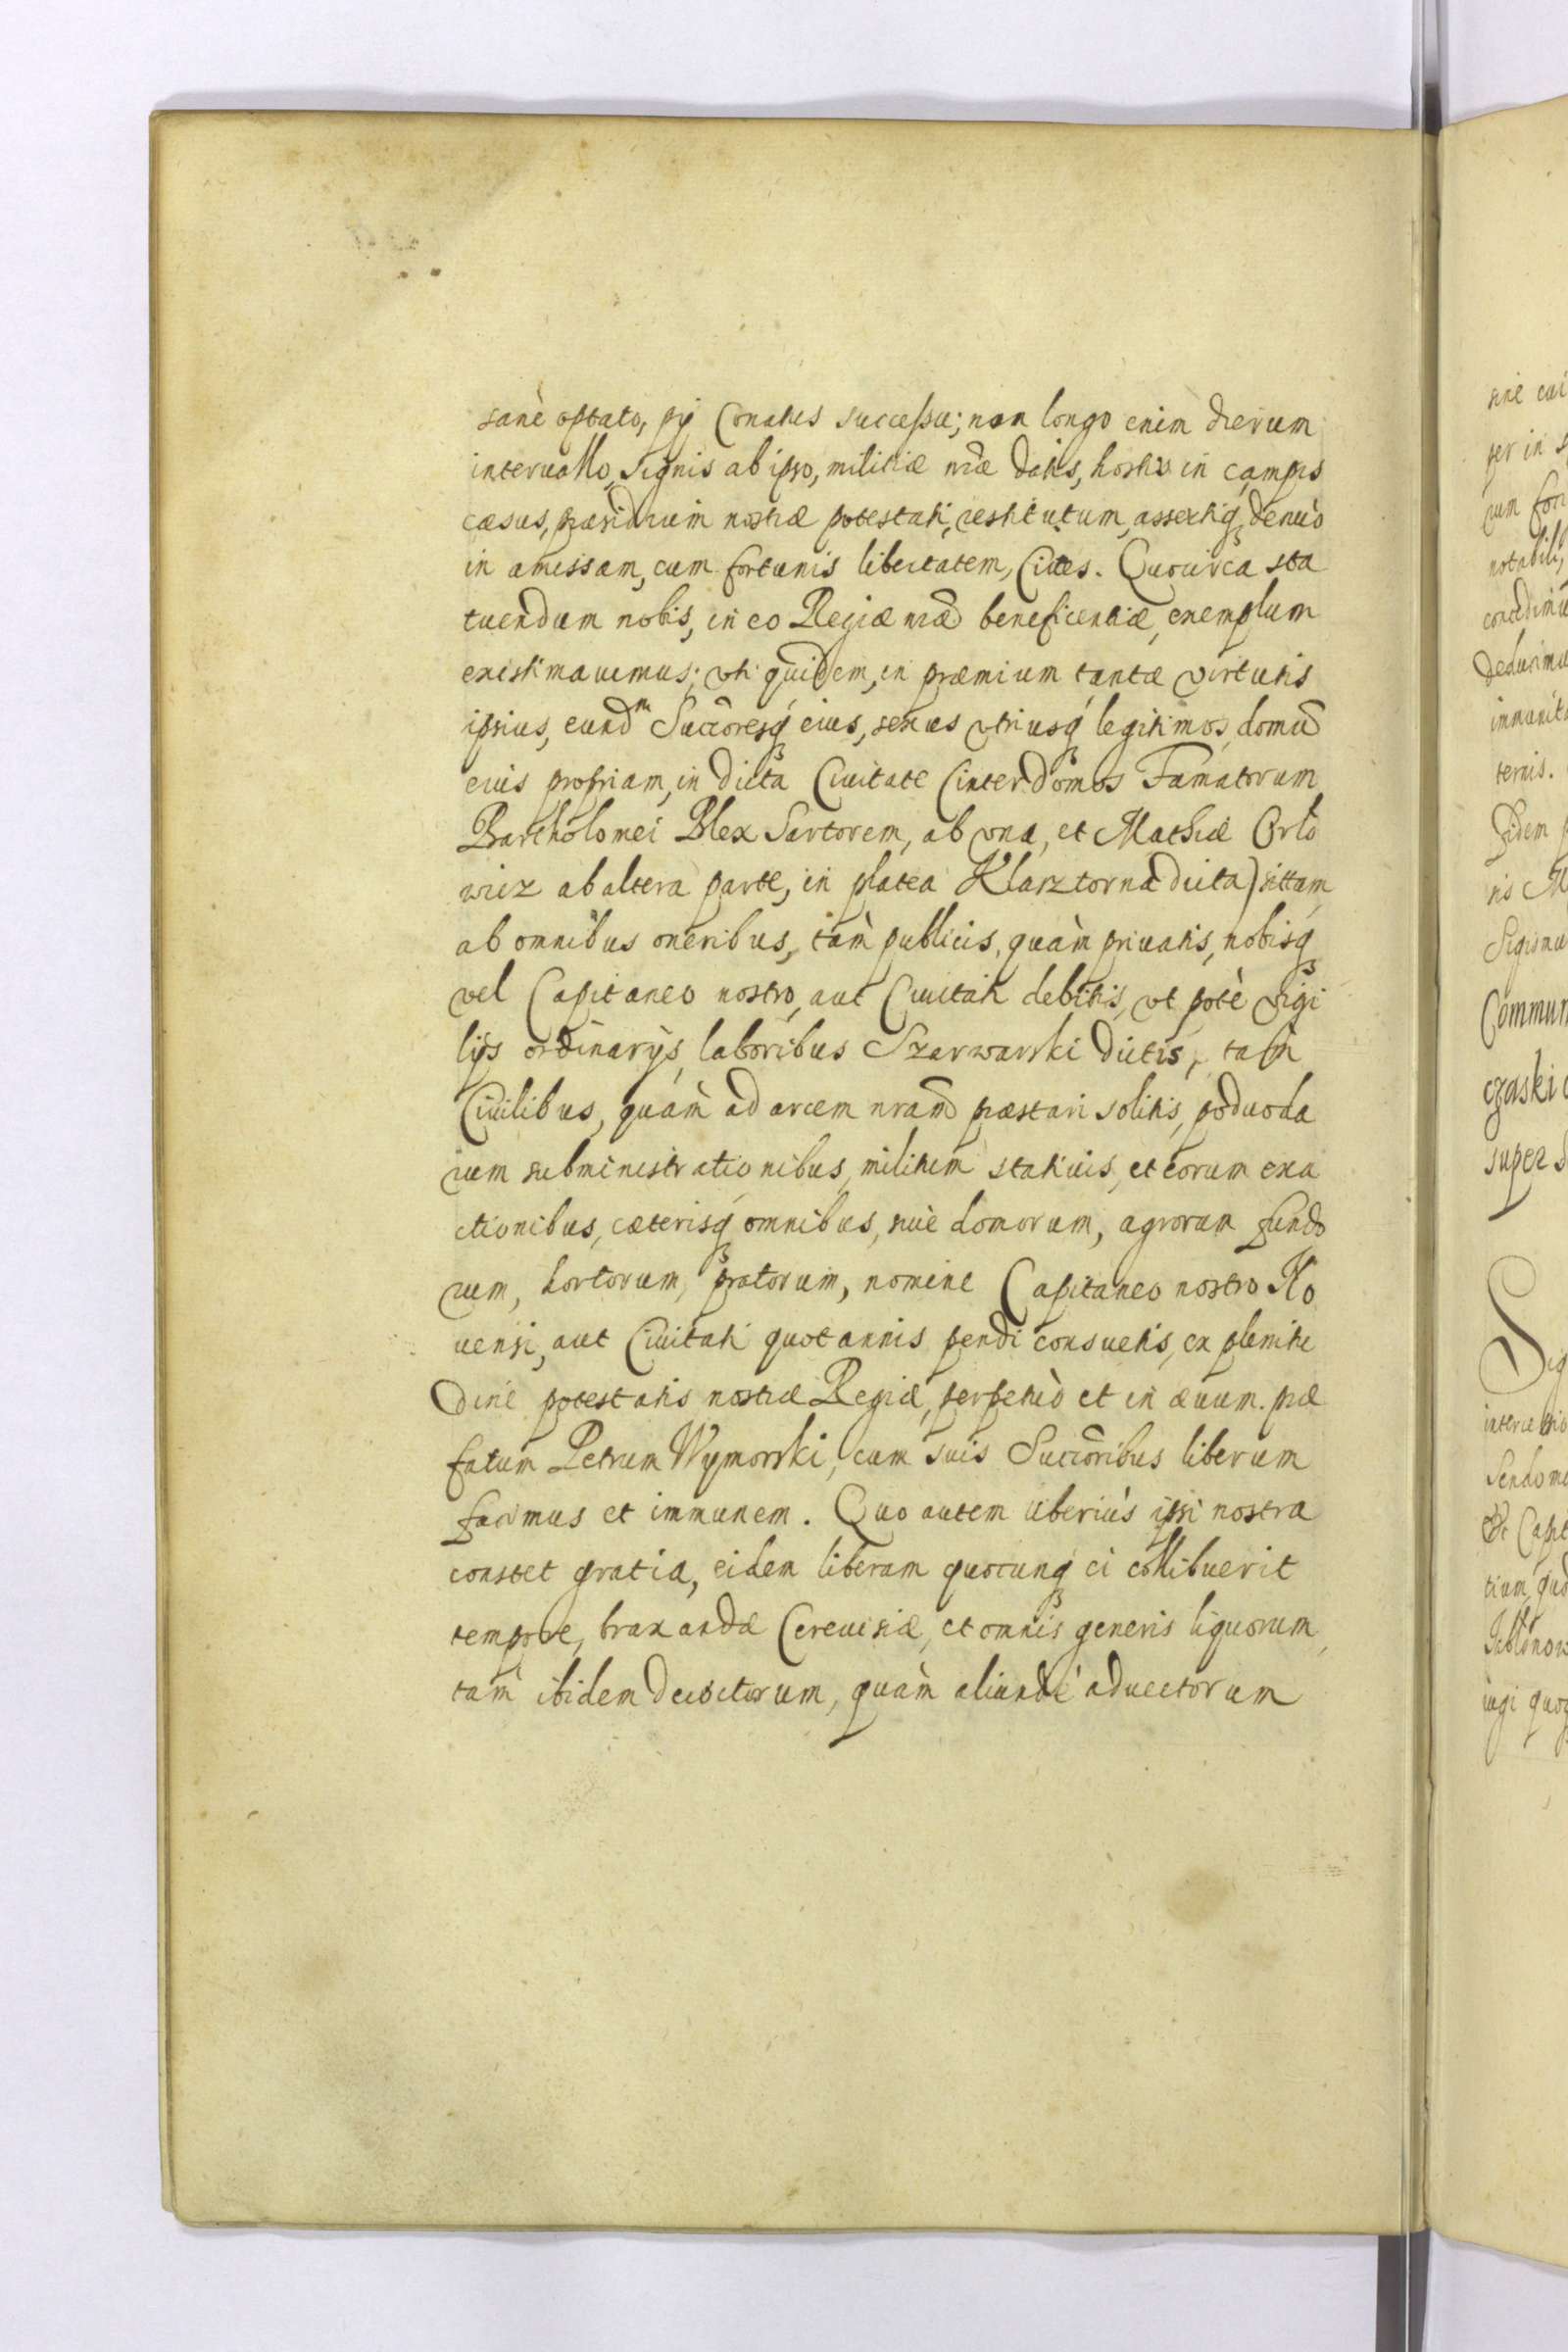 sanè optato, pÿ Conatus successu; non longo enim dierum
interuallo, signis ab ipso, militiæ nræ datis, hostis in campis
cæsus, præsidium nostræ potestati, restitutum, assertiq́ʒ denuò
in amissam, cum fortunis libertatem, Ciues. Quocirca sta
tuendum nobis, in eo Regiæ nræ beneficentiæ, exemplum
existimauimus; vti quidem, in præmium tantæ virtutis
ipsius, eundᵐ Succoresq́ʒ eius, sexus vtriusq́ʒ legitimos, domū
eius propriam, in dicta Ciuitate (inter domos Famatorum
Bartholomei Blex Sartorem, ab vna, et Mathiæ Orło
wicz ab altera parte, in platea Klasztorna dicta) sittam,
ab omnibus oneribus, tàm publicis, quàm priuatis, nobisq́ʒ
vel Capitaneo nostro, aut Ciuitati debitis, vt potè vigi
lÿs ordinarÿs, laboribus Szarwarski dictis, tàm
Ciuilibus, quàm ad arcem nram præstari solitis, poduoda
rum subministrationibus, militum statiuis, et eorum exa
ctionibus, cæterisq́ʒ omnibus, siuè domorum, agrorum fundo
rum, hortorum, pratorum, nomine Capitaneo nostro Ko
uensi, aut Ciuitati quotannis pendi consuetis, ex plenitu
dine potestatis nostræ Regiæ, perpetuò et in æuum. præ
fatum Petrum Wymorski, cum suis Succoribus liberum
facimus et immunem. Quo autem vberiùs ipsi nostra
constet gratia, eidem liberam quocunq́ʒ ei collibuerit
tempore, braxandæ Cereuisiæ, et omnis generis liquorum,
tàm ibidem decoctorum, quàm aliundè aduectorum